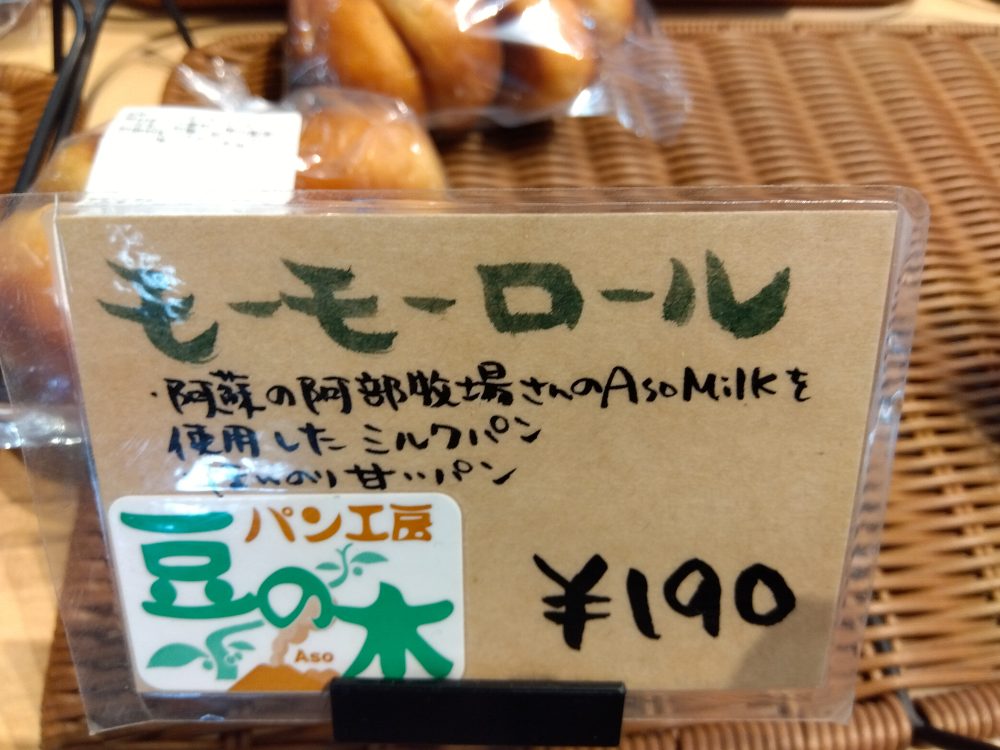 モーモーロール
・阿蘇の阿部牧場さんのAsoMilkを
使用したミルクパン
ほんのり甘いパン
パン工房
豆の木
Aso
¥190